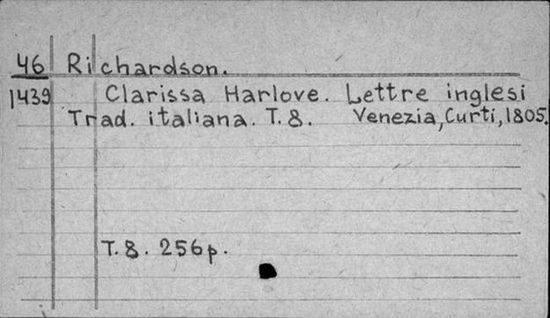 46 Richardson.
1439 Clarissa Harlove. Lettre inglesi
Trad. italiana. T. 8. Venezia, Curti, 1805.
T. 8. 256p.